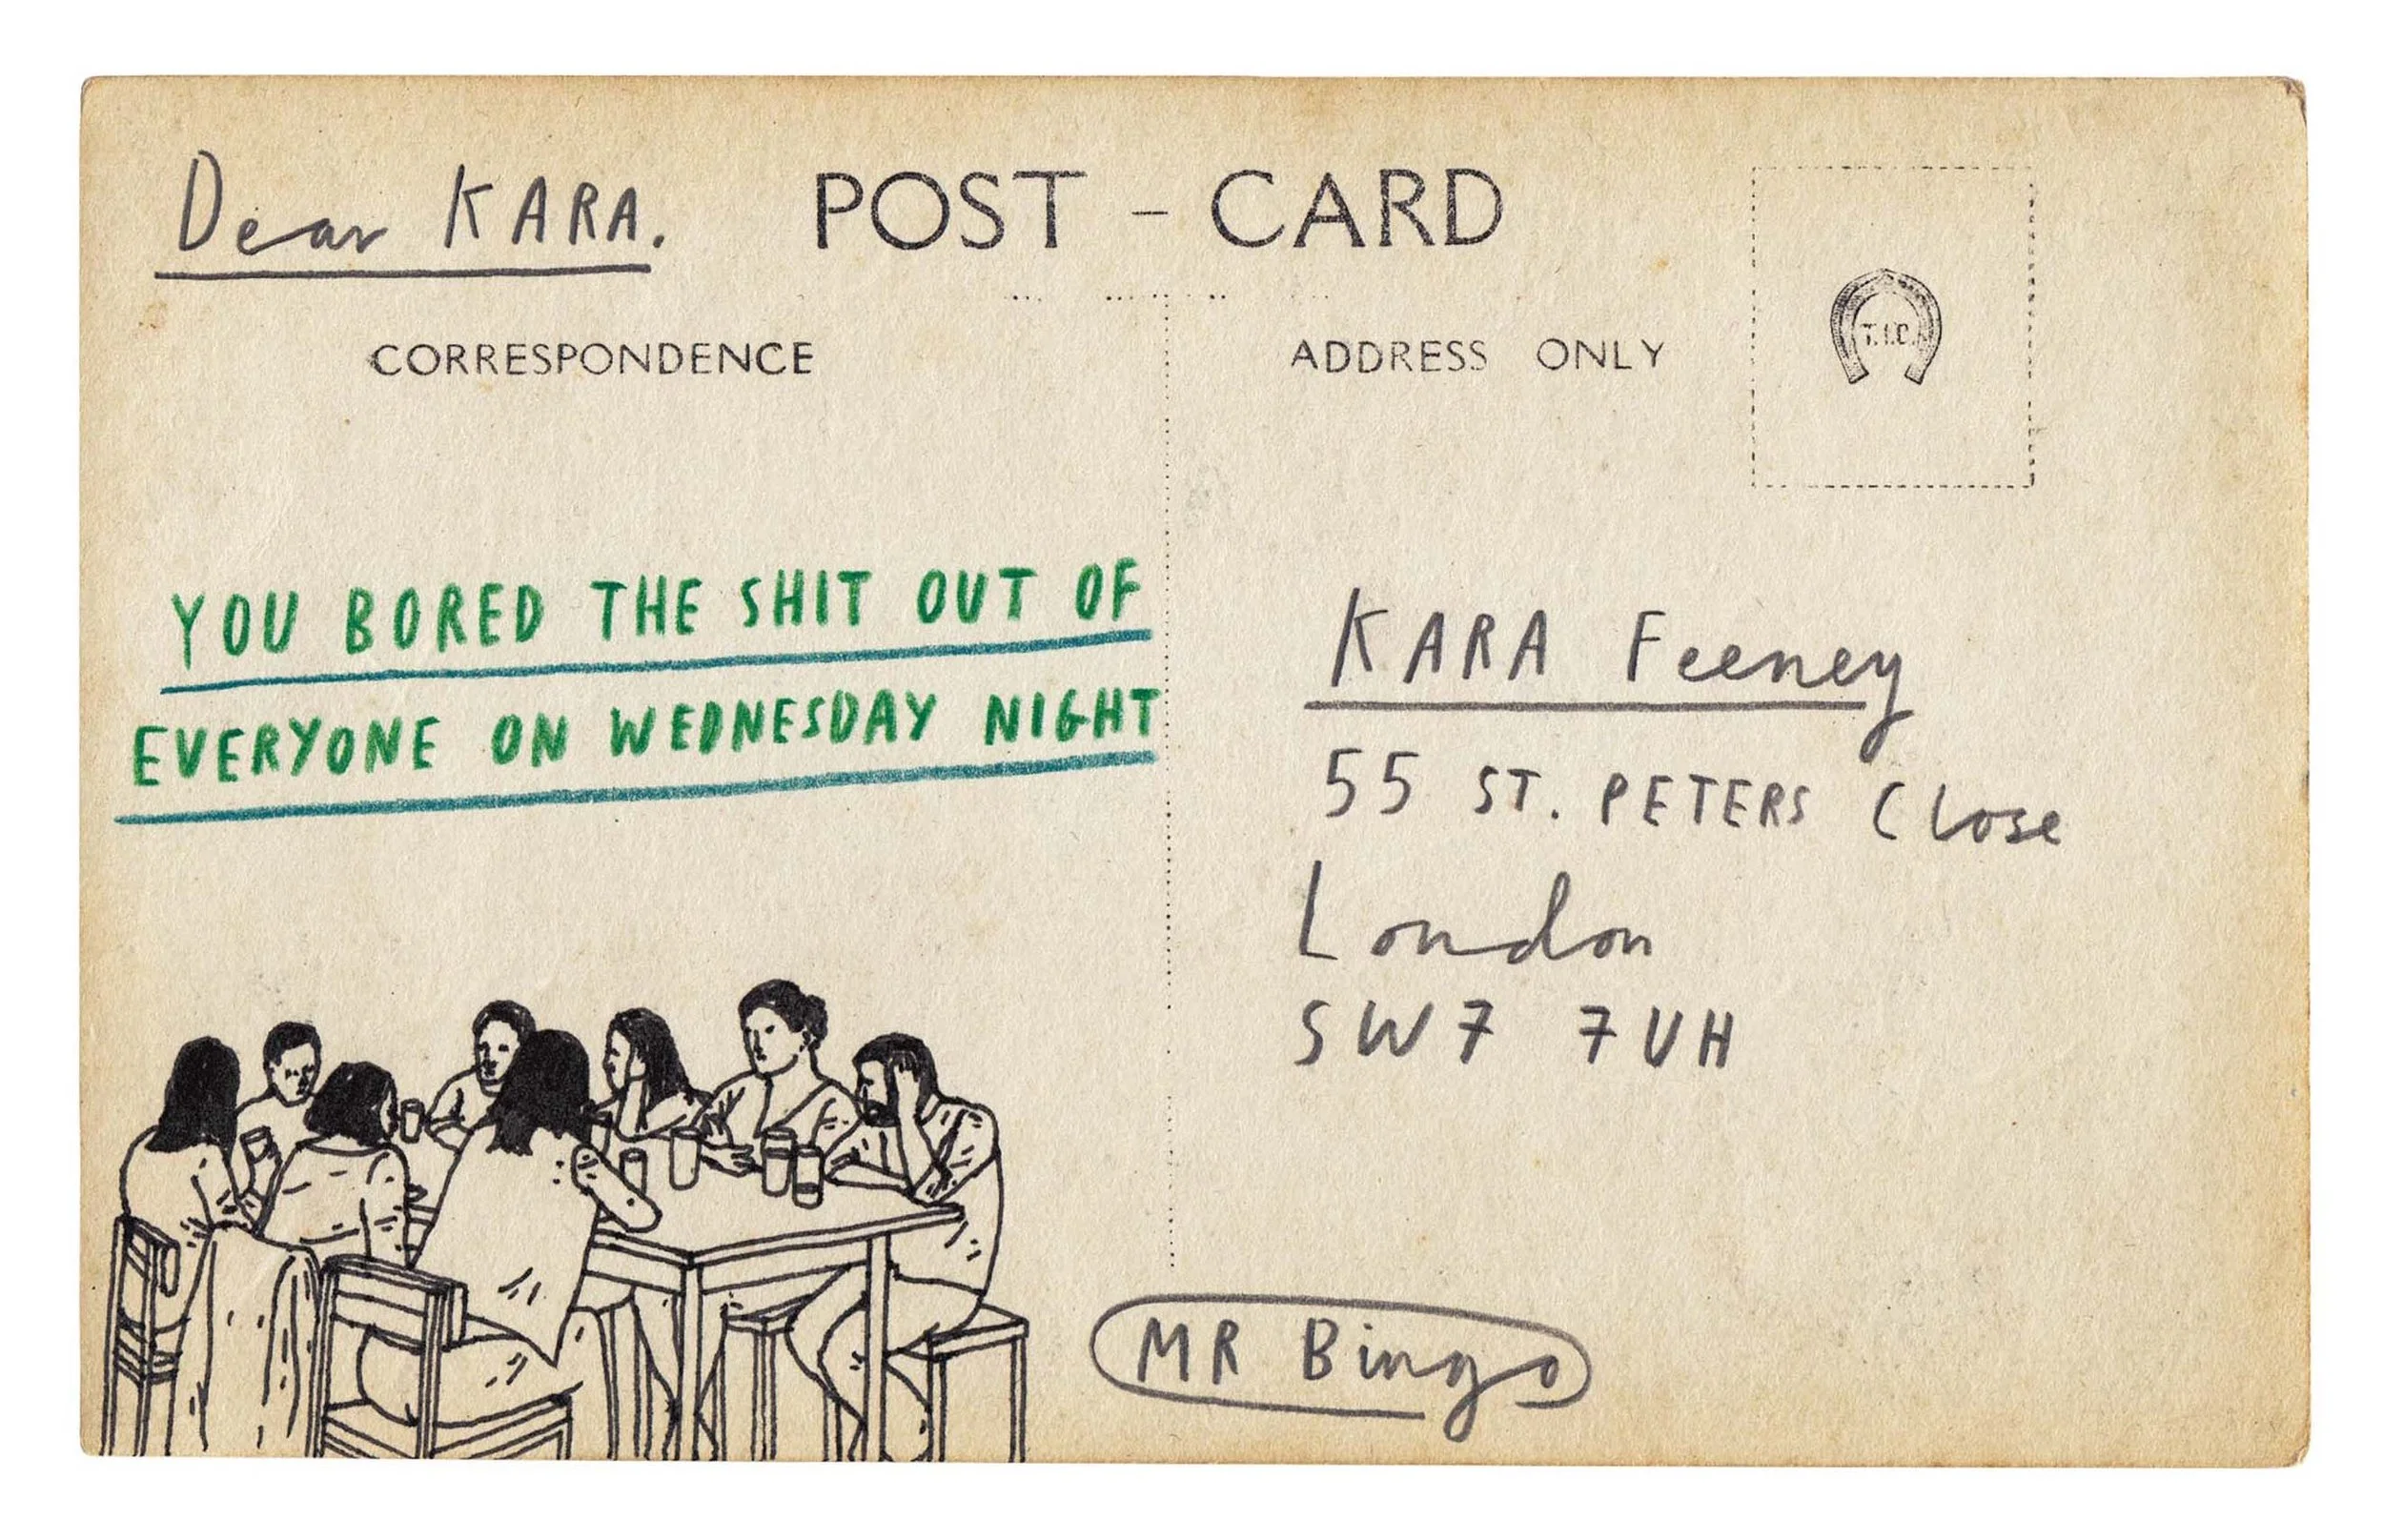 Dear KARA.
POST - CARD
CORRESPONDENCE
ADDRESS ONLY
T.I.C.
YOU BORED THE SHIT OUT OF
EVERYONE ON WEDNESDAY NIGHT
KARA Feeney
55 ST. PETERS Close
London
SW7 7UH
MR Bingo